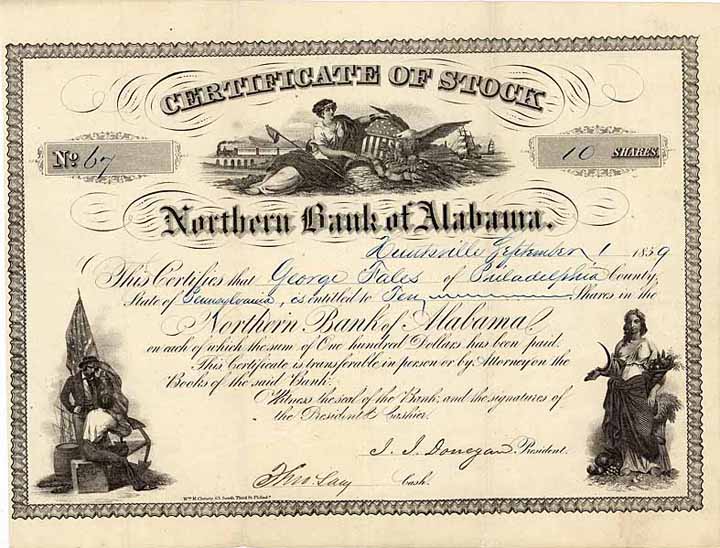 CERTIFICATE OF STOCK
No. 67
10 SHARES.
Northern Bank of Alabama.
Huntsville September 1 1859
This Certifies that George Fales of Philadelphia County,
State of Pennsylvania, is entitled to Ten Shares in the
Northern Bank of Alabama,
on each of which the sum of One hundred Dollars has been paid.
This Certificate is transferable in person or by Attorney on the
Books of the said Bank.
Witness the seal of the Bank, and the signatures of
the President & Cashier.
J. J. Donegan President.
Theo. Lacy Cash.
Wm. H. Christy 63 South Third St. Philada.